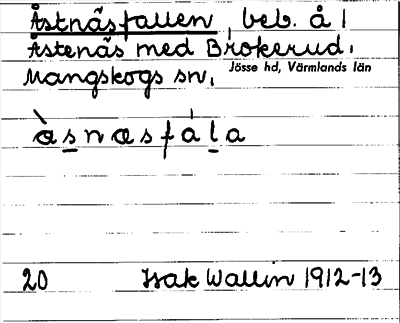 Åstnäsfallen, beb. å 1
Åstenäs med Brokerud.
Mangskogs sn,
Jösse hd, Värmlands län
æ̀snæsfála
20 Isak Wallin 1912-13